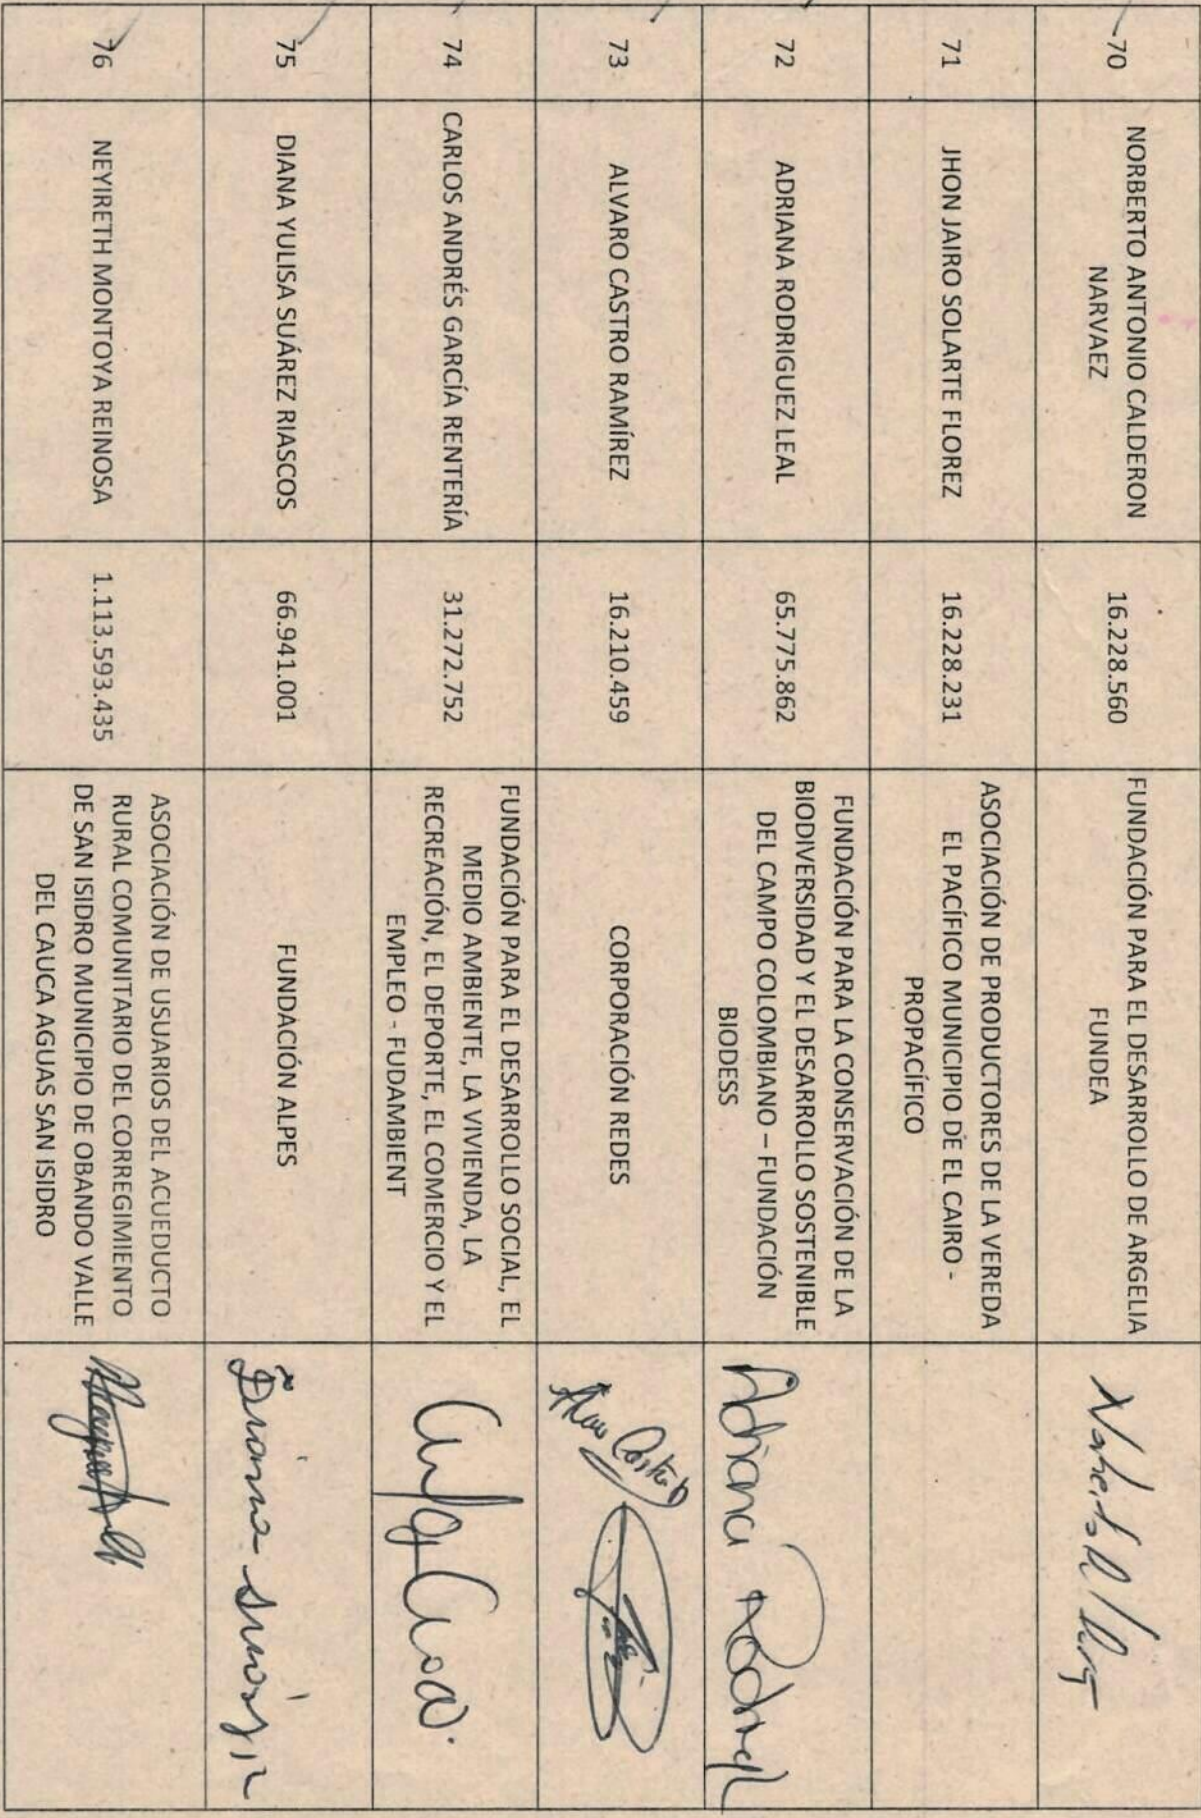 70
NORBERTO ANTONIO CALDERON
NARVAEZ
16.228.560
FUNDACIÓN PARA EL DESARROLLO DE ARGELIA
FUNDEA
71
JHON JAIRO SOLARTE FLOREZ
16.228.231
ASOCIACIÓN DE PRODUCTORES DE LA VEREDA
EL PACÍFICO MUNICIPIO DE EL CAIRO -
PROPACÍFICO
72
ADRIANA RODRIGUEZ LEAL
65.775.862
FUNDACIÓN PARA LA CONSERVACIÓN DE LA
BIODIVERSIDAD Y EL DESARROLLO SOSTENIBLE
DEL CAMPO COLOMBIANO – FUNDACIÓN
BIODESS
Adriana
73
ALVARO CASTRO RAMÍREZ
16.210.459
CORPORACIÓN REDES
Castro
74
CARLOS ANDRÉS GARCÍA RENTERÍA
31.272.752
FUNDACIÓN PARA EL DESARROLLO SOCIAL, EL
MEDIO AMBIENTE, LA VIVIENDA, LA
RECREACIÓN, EL DEPORTE, EL COMERCIO Y EL
EMPLEO - FUDAMBIENT
75
DIANA YULISA SUÁREZ RIASCOS
66.941.001
FUNDACIÓN ALPES
Diana
76
NEYIRETH MONTOYA REINOSA
1.113.593.435
ASOCIACIÓN DE USUARIOS DEL ACUEDUCTO
RURAL COMUNITARIO DEL CORREGIMIENTO
DE SAN ISIDRO MUNICIPIO DE OBANDO VALLE
DEL CAUCA AGUAS SAN ISIDRO